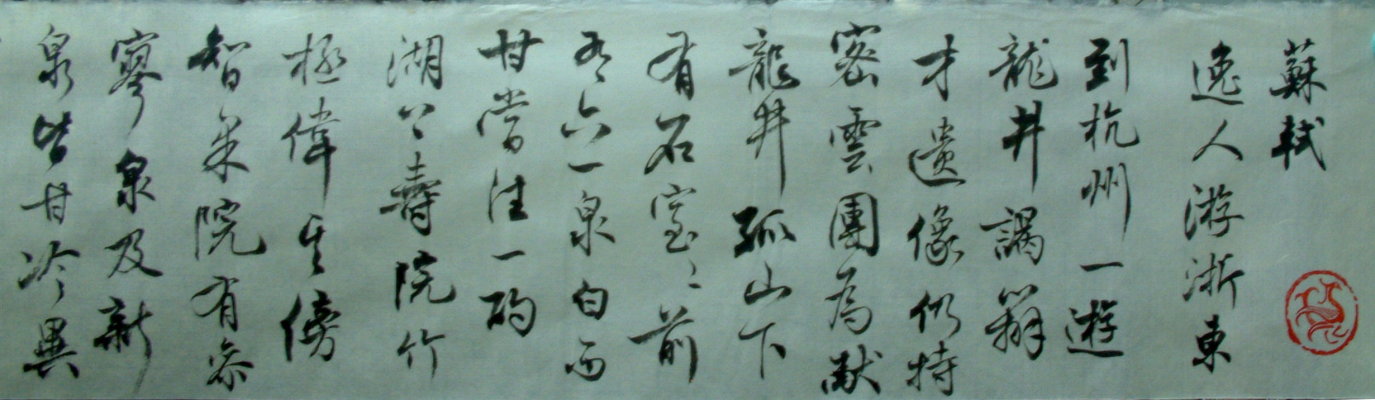 蘇軾
逸人游浙東
到杭州一遊
龍井謁辯
才遺像仍持
密雲團為献
龍井孤山下
有石室〻前
有六一泉白而
甘當往一酌
湖上壽院竹
極偉其傍
智果院有參
寥泉及新
泉皆甘冷異